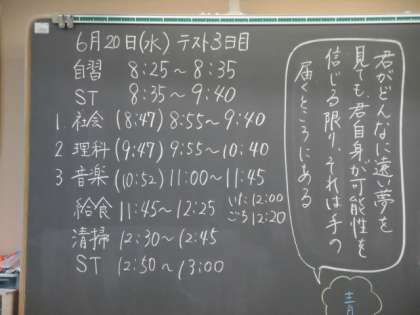 6月20日(水) テスト3日目
自習 8:25～8:35
ST 8:35～9:40
1. 社会 (8:47) 8:55～9:40
2 理科 (9:47) 9:55～10:40
3 音楽 (10:52) 11:00～11:45
給食 11:45～12:25 いた12:00 ごち12:20
清掃 12:30～12:45
ST 12:50～13:00
君がどんなに遠い夢を
見ても、君自身が可能性を
信じる限り、それは手の
届くところにある